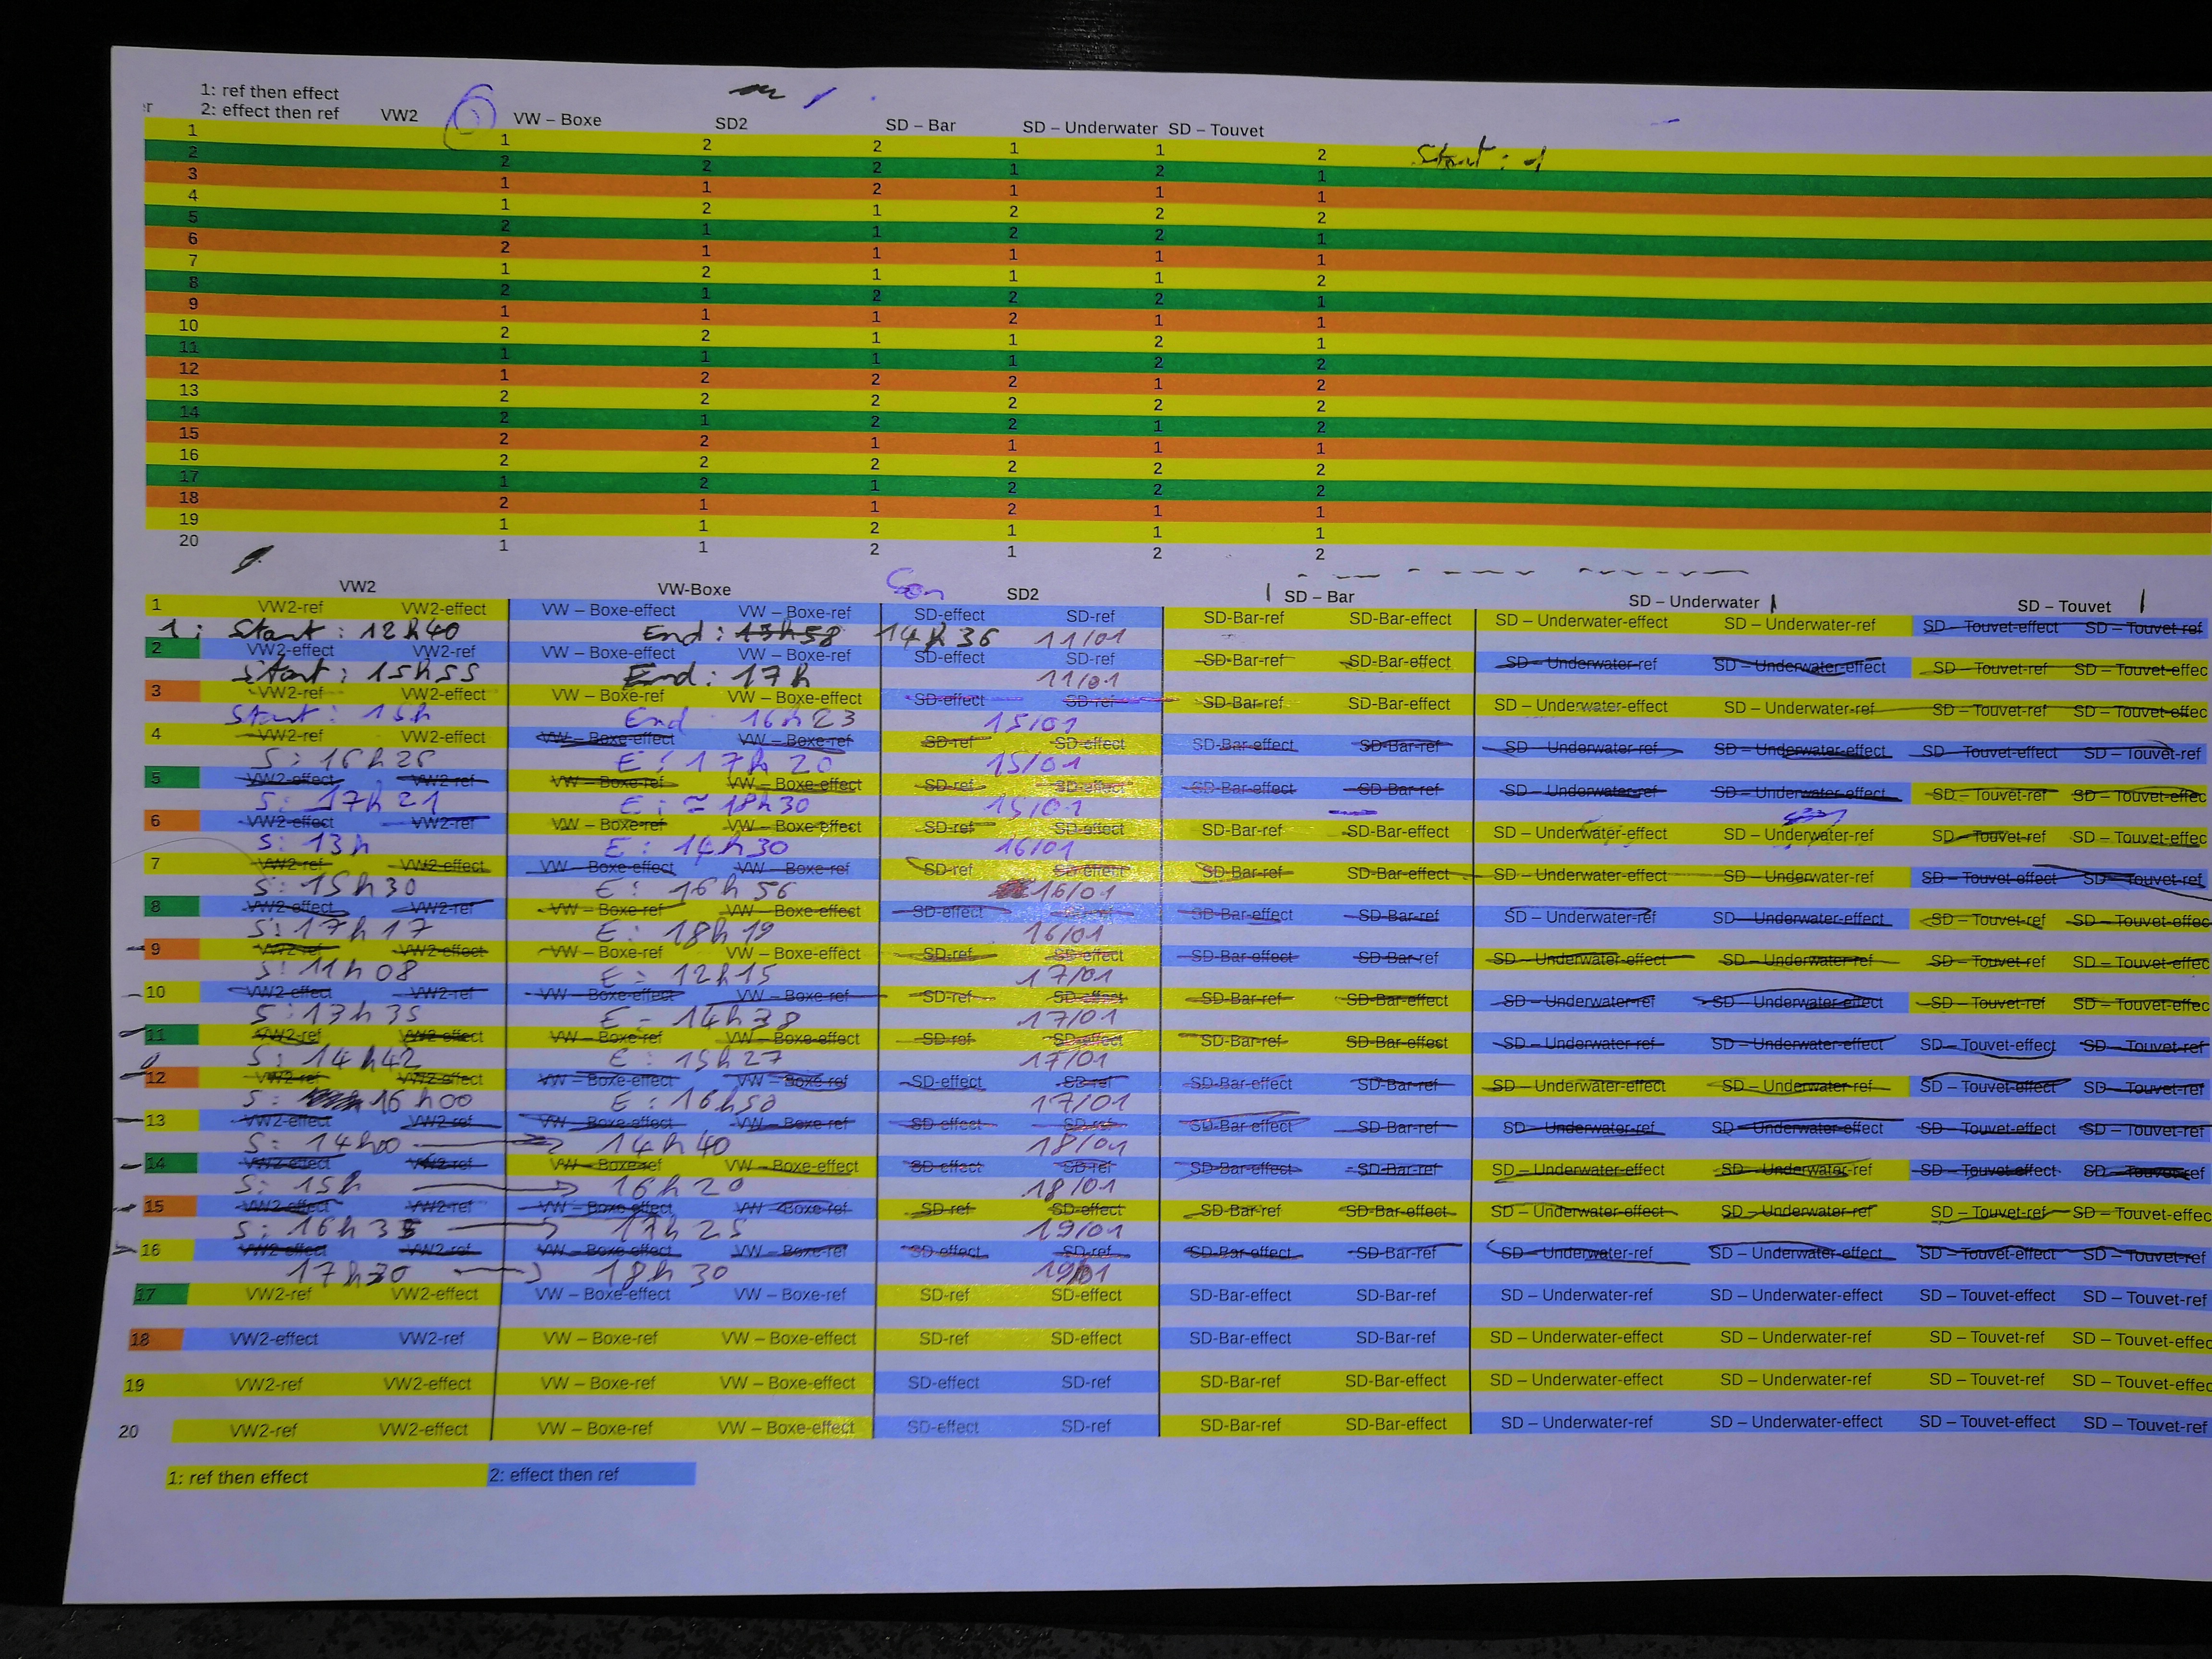 1: ref then effect
er 2: effect then ref VW2 VW – Boxe SD2 SD – Bar SD – Underwater SD – Touvet
1 1 2 2 1 1 2 Start: 1
2 2 2 2 1 2 1
3 1 1 2 1 1 1
4 1 2 1 2 2 2
5 2 1 1 2 2 1
6 2 1 1 1 1 1
7 1 2 1 1 1 2
8 2 1 2 2 2 1
9 1 1 1 2 1 1
10 2 2 1 1 2 1
11 1 1 1 1 2 2
12 1 2 2 2 1 2
13 2 2 2 2 2 2
14 2 1 2 2 1 2
15 2 2 1 1 1 1
16 2 2 2 2 2 2
17 1 2 1 2 2 2
18 2 1 1 2 1 1
19 1 1 2 1 1 1
20 1 1 2 1 2 2
VW2 VW-Boxe SD2 SD – Bar SD – Underwater SD – Touvet
1 VW2-ref VW2-effect VW – Boxe-effect VW – Boxe-ref SD-effect SD-ref SD-Bar-ref SD-Bar-effect SD – Underwater-effect SD – Underwater-ref SD – Touvet-effect SD – Touvet-ref
1: Start: 12h40 End: 13h58 14h36 11/01
2 VW2-effect VW2-ref VW – Boxe-effect VW – Boxe-ref SD-effect SD-ref SD-Bar-ref SD-Bar-effect SD – Underwater-ref SD – Underwater-effect SD – Touvet-ref SD – Touvet-effec
Start: 15h55 End: 17h 11/01
3 VW2-ref VW2-effect VW – Boxe-ref VW – Boxe-effect SD-effect SD-ref SD-Bar-ref SD-Bar-effect SD – Underwater-effect SD – Underwater-ref SD – Touvet-ref SD – Touvet-effec
Start: 15h End 16h23 15/01
4 VW2-ref VW2-effect VW – Boxe-effect VW – Boxe-ref SD-ref SD-effect SD-Bar-effect SD-Bar-ref SD – Underwater-ref SD – Underwater-effect SD – Touvet-effect SD – Touvet-ref
S: 16h26 E: 17h20 15/01
5 VW2-effect VW2-ref VW – Boxe-ref VW – Boxe-effect SD-ref SD-effect SD-Bar-effect SD-Bar-ref SD – Underwater-ref SD – Underwater-effect SD – Touvet-ref SD – Touvet-effec
S: 17h21 E: ≃ 18h30 15/01
6 VW2-effect VW2-ref VW – Boxe-ref VW – Boxe-effect SD-ref SD-effect SD-Bar-ref SD-Bar-effect SD – Underwater-effect SD – Underwater-ref SD – Touvet-ref SD – Touvet-effec
S: 13h E: 14h30 16/01
7 VW2-ref VW2-effect VW – Boxe-effect VW – Boxe-ref SD-ref SD-effect SD-Bar-ref SD-Bar-effect SD – Underwater-effect SD – Underwater-ref SD – Touvet-effect SD – Touvet-ref
S: 15h30 E: 16h56 16/01
8 VW2-effect VW2-ref VW – Boxe-ref VW – Boxe-effect SD-effect SD-Bar-effect SD-Bar-ref SD – Underwater-ref SD – Underwater-effect SD – Touvet-ref SD – Touvet-effec
S: 17h17 E: 18h19 16/01
9 VW2-ref VW2-effect VW – Boxe-ref VW – Boxe-effect SD-ref SD-effect SD-Bar-effect SD-Bar-ref SD – Underwater-effect SD – Underwater-ref SD – Touvet-ref SD – Touvet-effec
S: 11h08 E: 12h15 17/01
10 VW2-effect VW2-ref VW – Boxe-effect VW – Boxe-ref SD-ref SD-effect SD-Bar-ref SD-Bar-effect SD – Underwater-ref SD – Underwater-effect SD – Touvet-ref SD – Touvet-effec
S: 13h35 E – 14h38 17/01
11 VW2-ref VW2-effect VW – Boxe-ref VW – Boxe-effect SD-ref SD-effect SD-Bar-ref SD-Bar-effect SD – Underwater-ref SD – Underwater-effect SD – Touvet-effect SD – Touvet-ref
S: 14h42 E: 15h27 17/01
12 VW2-ref VW2-effect VW – Boxe-effect VW – Boxe-ref SD-effect SD-ref SD-Bar-effect SD-Bar-ref SD – Underwater-effect SD – Underwater-ref SD – Touvet-effect SD – Touvet-ref
S: 16h00 E: 16h50 17/01
13 VW2-effect VW2-ref VW – Boxe-effect VW – Boxe-ref SD-effect SD-ref SD-Bar-effect SD-Bar-ref SD – Underwater-ref SD – Underwater-effect SD – Touvet-effect SD – Touvet-ref
S: 14h00 → 14h40 18/01
14 VW2-effect VW2-ref VW – Boxe-ref VW – Boxe-effect SD-effect SD-ref SD-Bar-effect SD-Bar-ref SD – Underwater-effect SD – Underwater-ref SD – Touvet-effect SD – Touvet-ref
S: 15h → 16h20 18/01
15 VW2-effect VW2-ref VW – Boxe-effect VW – Boxe-ref SD-ref SD-effect SD-Bar-ref SD-Bar-effect SD – Underwater-effect SD – Underwater-ref SD – Touvet-ref SD – Touvet-effec
S: 16h35 → 17h25 19/01
16 VW2-effect VW2-ref VW – Boxe-effect VW – Boxe-ref SD-effect SD-ref SD-Bar-effect SD-Bar-ref SD – Underwater-ref SD – Underwater-effect SD – Touvet-effect SD – Touvet-ref
17h30 → 18h30 19/01
17 VW2-ref VW2-effect VW – Boxe-effect VW – Boxe-ref SD-ref SD-effect SD-Bar-effect SD-Bar-ref SD – Underwater-ref SD – Underwater-effect SD – Touvet-effect SD – Touvet-ref
18 VW2-effect VW2-ref VW – Boxe-ref VW – Boxe-effect SD-ref SD-effect SD-Bar-effect SD-Bar-ref SD – Underwater-effect SD – Underwater-ref SD – Touvet-ref SD – Touvet-effec
19 VW2-ref VW2-effect VW – Boxe-ref VW – Boxe-effect SD-effect SD-ref SD-Bar-ref SD-Bar-effect SD – Underwater-effect SD – Underwater-ref SD – Touvet-ref SD – Touvet-effec
20 VW2-ref VW2-effect VW – Boxe-ref VW – Boxe-effect SD-effect SD-ref SD-Bar-ref SD-Bar-effect SD – Underwater-ref SD – Underwater-effect SD – Touvet-effect SD – Touvet-ref
1: ref then effect 2: effect then ref